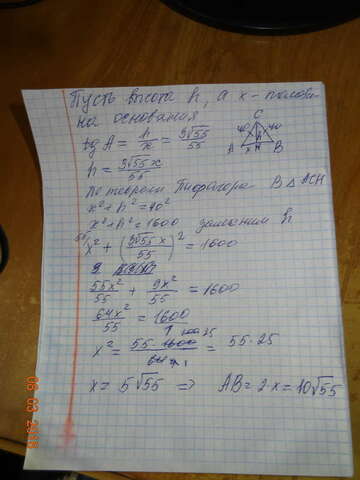 Пусть высота h, а x - полови-
на основания
tg A = h/x = 3√55/55
C
40 40
h
A x H B
h = 3√55x/55
По теореме Пифагора В △ ACH
x² + h² = 40²
x² + h² = 1600 заменим h
x² + (3√55x/55)² = 1600
55x²/55 + 9x²/55 = 1600
64x²/55 = 1600
x² = 55·1600/64 = 55·25
x = 5√55 => AB = 2·x = 10√55
08 03 2016